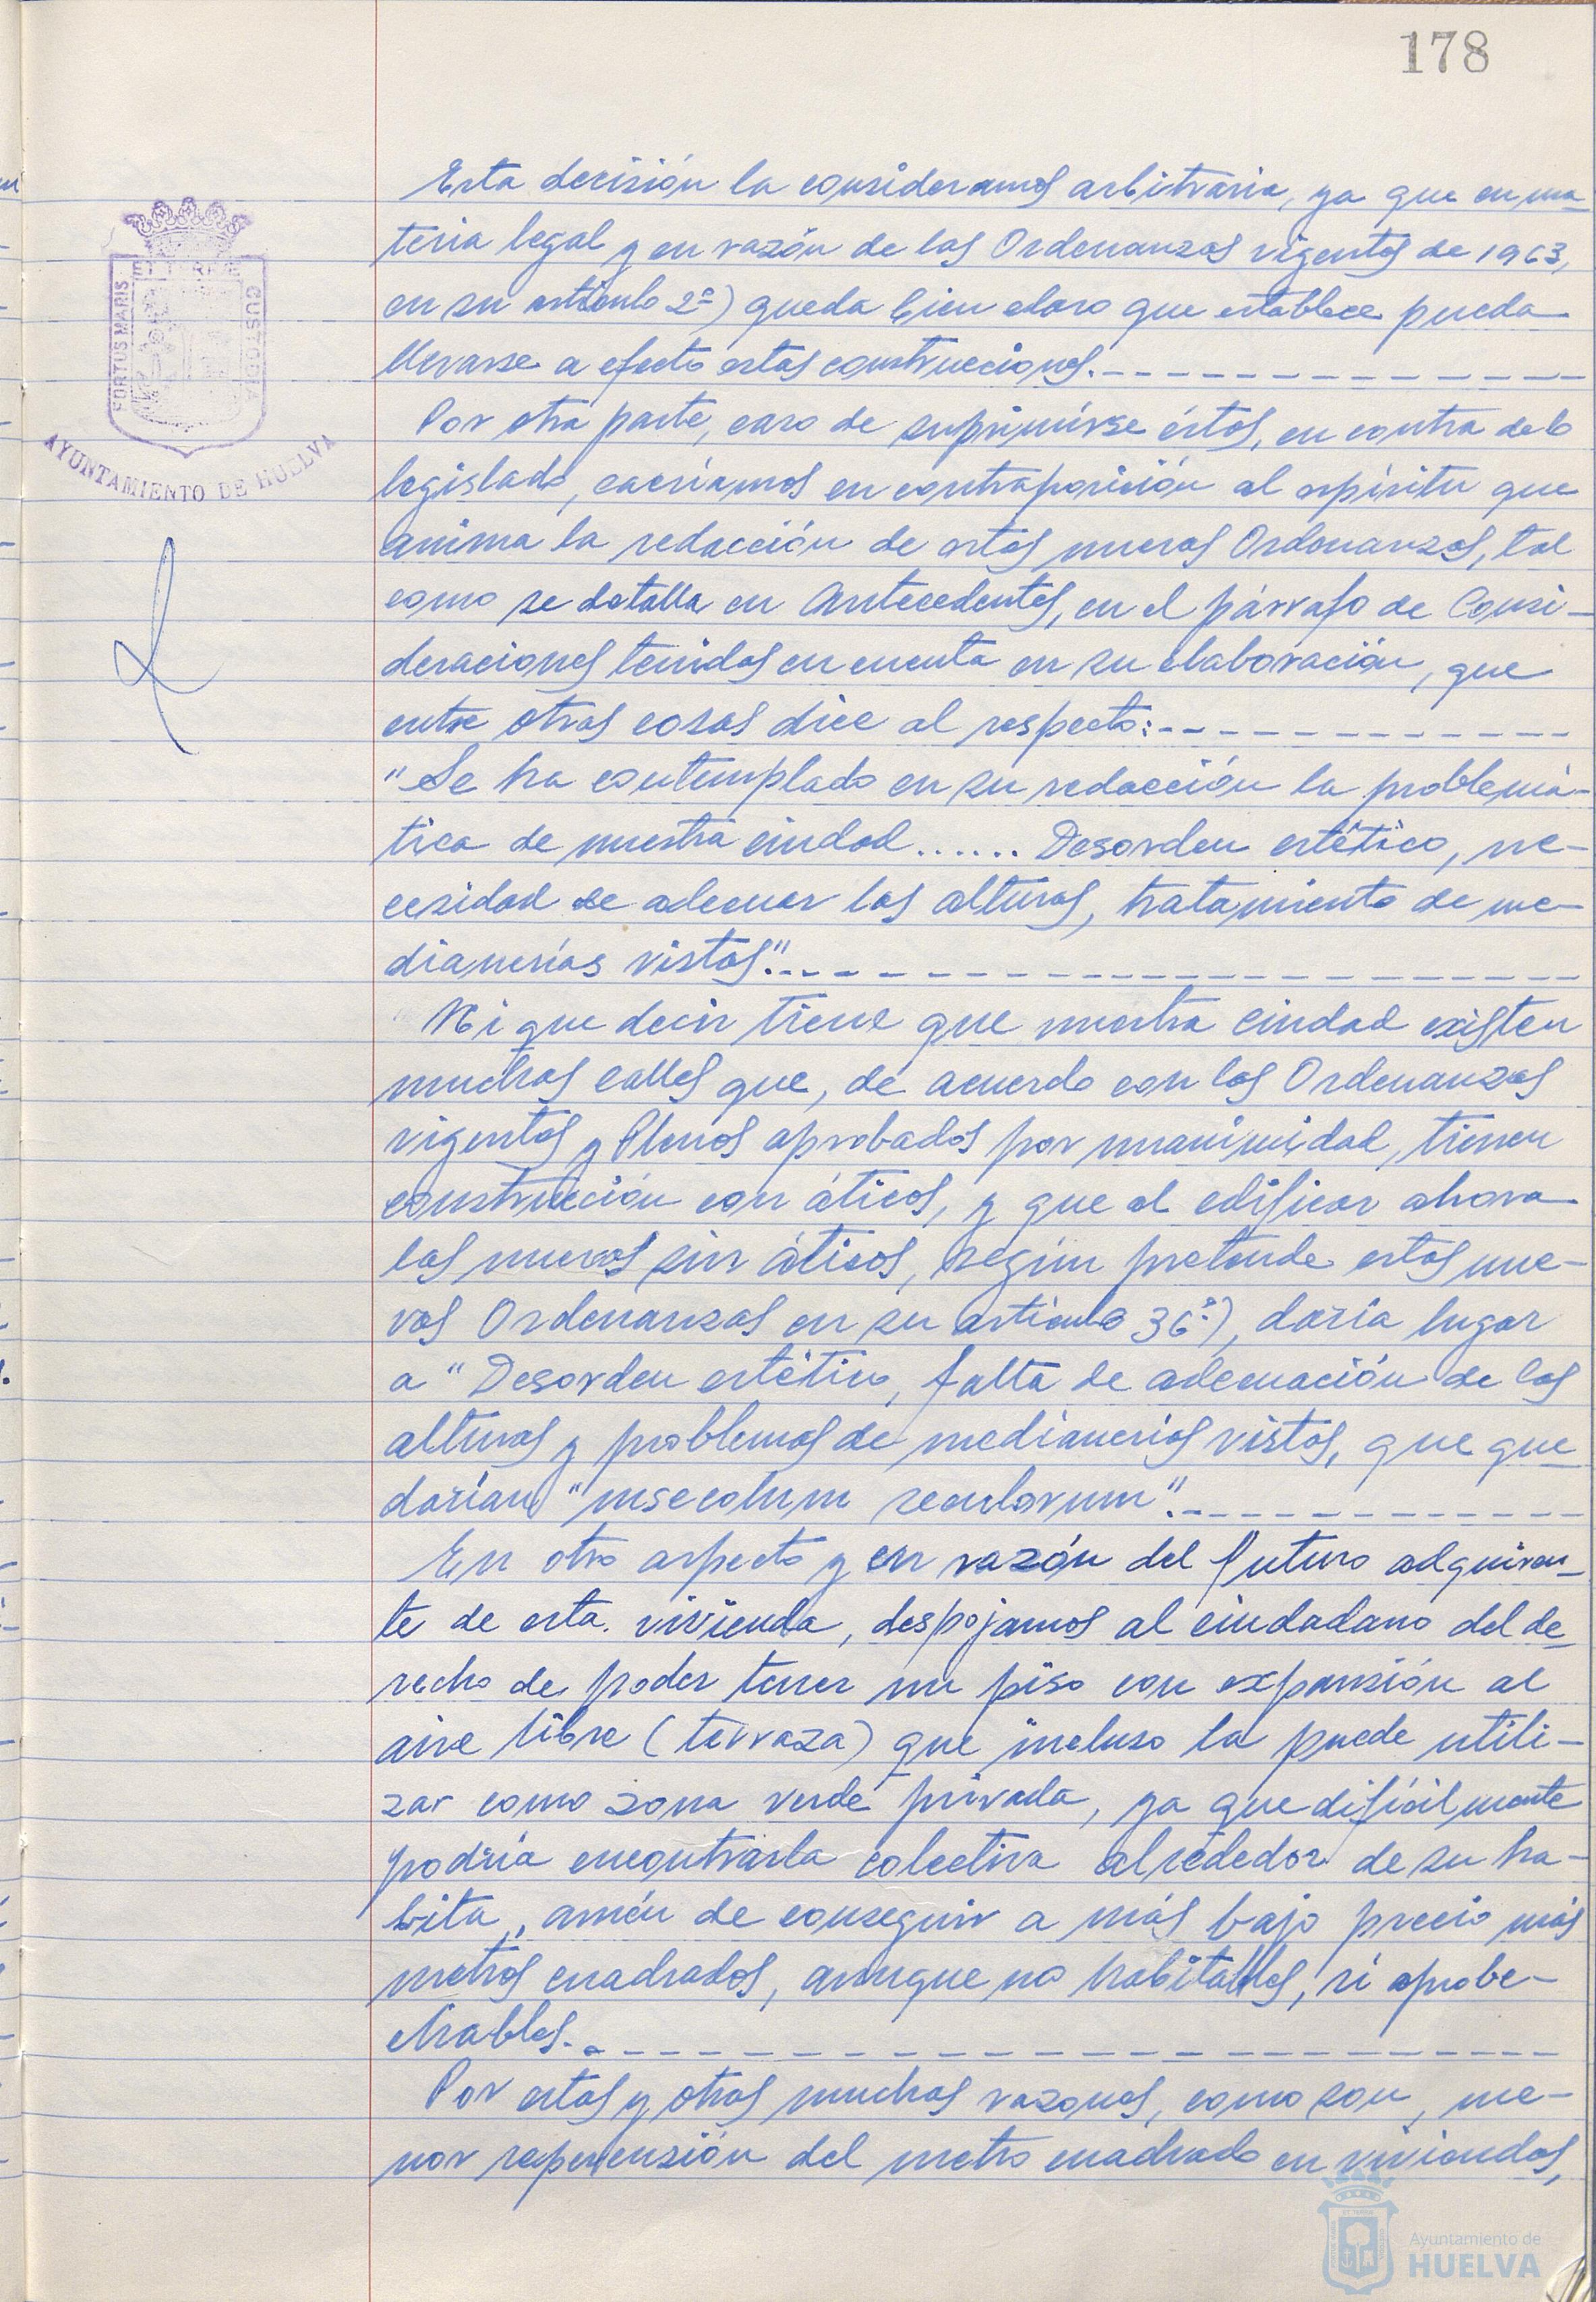 178
ET TERRAE
FORTUS MARIS
CUSTODIA
AYUNTAMIENTO DE HUELVA
Esta decisión la consideramos arbitraria, ya que en ma-
teria legal y en razón de las Ordenanzas vigentes de 1963,
en su artículo 2º) queda bien claro que establece pueda
llevarse a efecto estas construcciones.
Por otra parte, caso de suprimirse éstos, en contra de lo
legislado, caeríamos en contraposición al espíritu que
anima la redacción de estas nuevas Ordenanzas, tal
como se detalla en Antecedentes, en el párrafo de Consi-
deraciones tenidas en cuenta en su elaboración, que
entre otras cosas dice al respecto:
"Se ha contemplado en su redacción la problemá-
tica de nuestra ciudad...... Desorden estético, ne-
cesidad de adecuar las alturas, tratamiento de me-
dianerías vistas".
Ni que decir tiene que nuestra ciudad existen
muchas calles que, de acuerdo con las Ordenanzas
vigentes y Plenos aprobados por unanimidad, tienen
construcción con áticos, y que al edificar ahora
las nuevas sin áticos, según pretende estas nue-
vas Ordenanzas en su artículo 36º), daría lugar
a "Desorden estético, falta de adecuación de las
alturas y problemas de medianerías vistas, que que-
darían "insecolum seculorum".
En otro aspecto y en razón del futuro adquiren-
te de esta vivienda, despojamos al ciudadano del de-
recho de poder tener un piso con expansión al
aire libre (terraza) que incluso la puede utili-
zar como zona verde privada, ya que difícilmente
podría encontrarla colectiva alrededor de su ha-
bita, amén de conseguir a más bajo precio más
metros cuadrados, aunque no habitables, si aprobe-
chables.
Por estas y otras muchas razones, como son, me-
nor repercusión del metro cuadrado en viviendas,
Ayuntamiento de
HUELVA